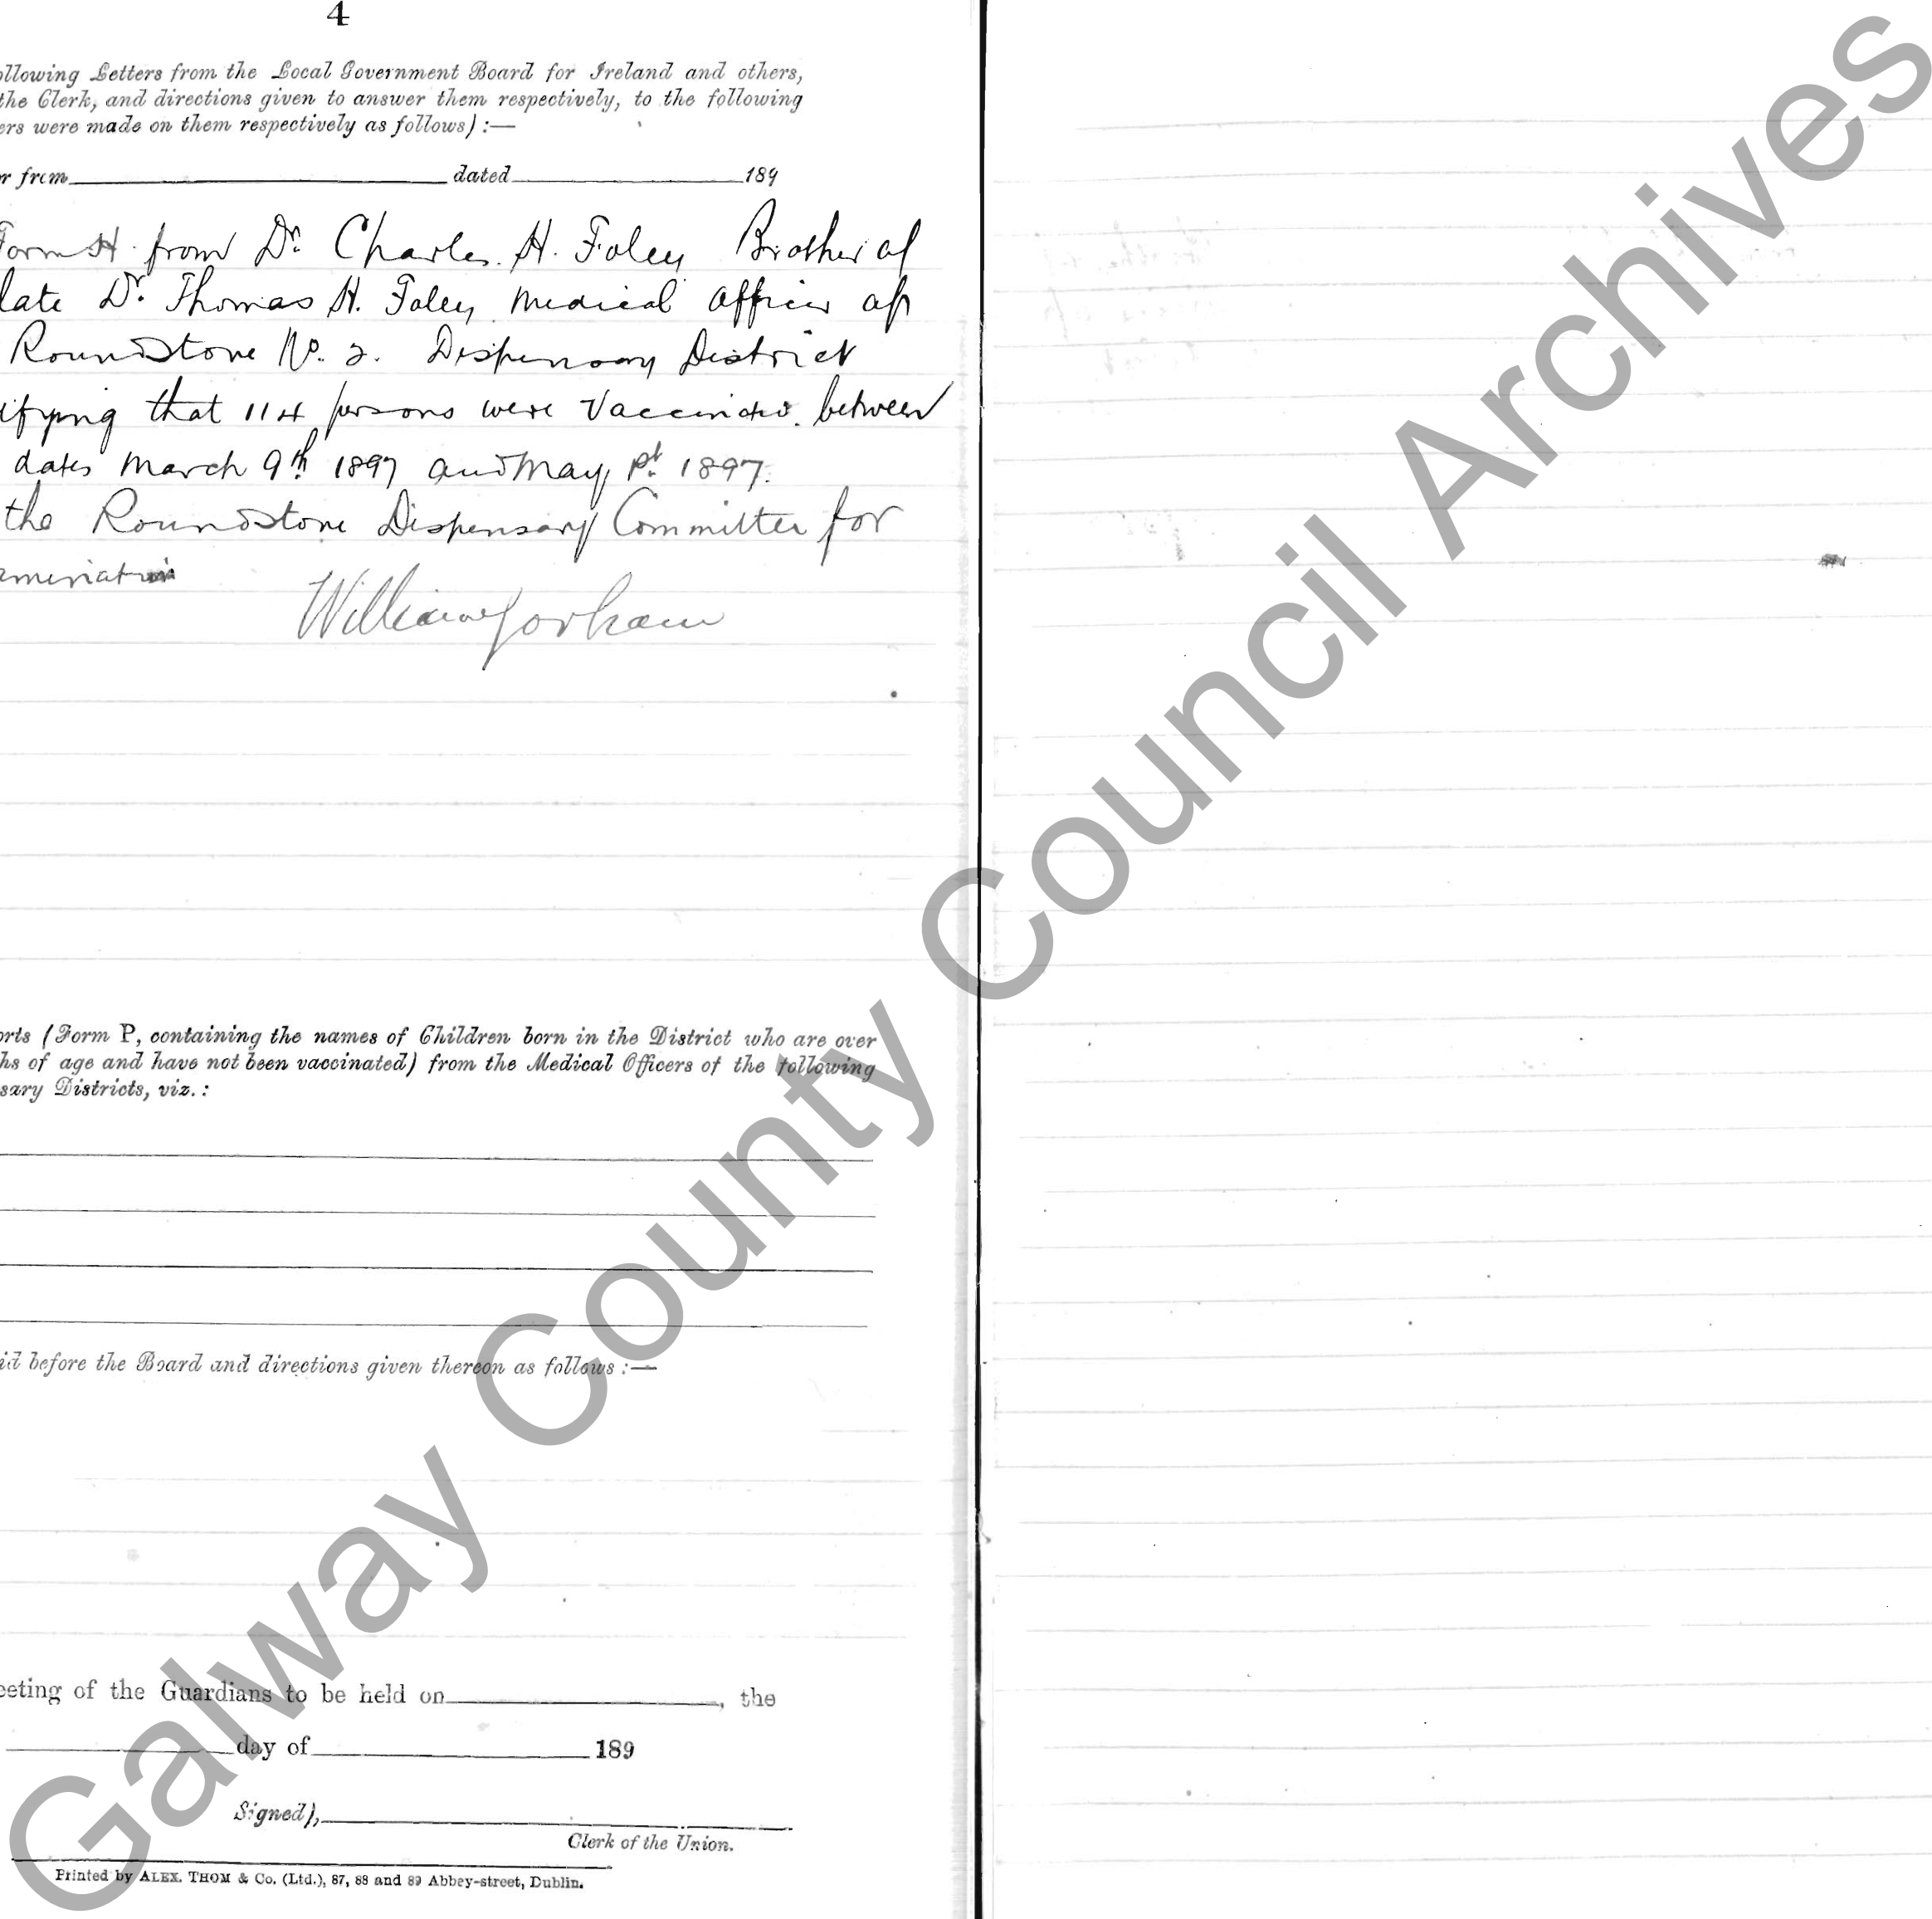 4
ollowing Letters from the Local Government Board for Ireland and others,
the Clerk, and directions given to answer them respectively, to the following
ers were made on them respectively as follows) :—
r from dated 189
Form H from Dr. Charles. H. Foley Brother of
late Dr. Thomas H. Foley Medical Officer of
Roundstone No. 2. Dispensary District
ifying that 114 persons were Vaccinated between
dates March 9th 1897 and May 1st. 1897.
the Roundstone Dispensary Committee for
William Gorham
orts (Form P, containing the names of Children born in the District who are over
hs of age and have not been vaccinated) from the Medical Officers of the following
sary Districts, viz. :
id before the Board and directions given thereon as follows :—
eeting of the Guardians to be held on , the
day of 189
Signed),
Clerk of the Union.
Printed by ALEX. THOM & Co. (Ltd.), 87, 88 and 89 Abbey-street, Dublin.
Galway County Council Archives